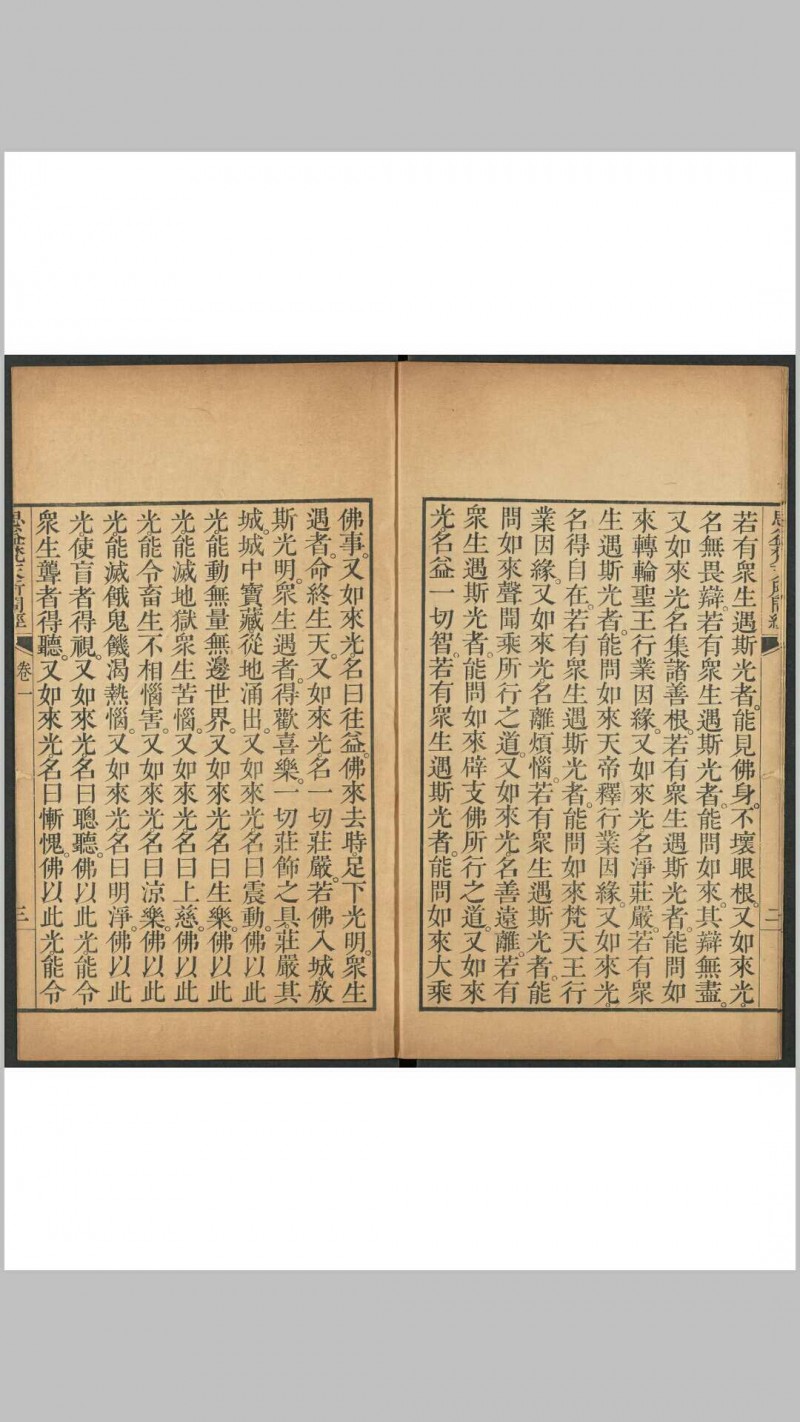 若有衆生遇斯光者。能見佛身。不壞眼根。又如來光。
名無畏辯。若有衆生遇斯光者。能問如來。其辯無盡。
又如來光名集諸善根。若有衆生遇斯光者。能問如
來轉輪聖王行業因緣。又如來光名淨莊嚴。若有衆
生遇斯光者。能問如來天帝釋行業因緣。又如來光。
名得自在。若有衆生遇斯光者。能問如來梵天王行
業因緣。又如來光名離煩惱。若有衆生遇斯光者。能
問如來聲聞乘所行之道。又如來光名善遠離。若有
衆生遇斯光者。能問如來辟支佛所行之道。又如來
光名益一切智。若有衆生遇斯光者。能問如來大乘
二
佛事。又如來光名曰往益。佛來去時足下光明。衆生
遇者。命終生天。又如來光名一切莊嚴。若佛入城。放
斯光明。衆生遇者。得歡喜樂。一切莊飾之具。莊嚴其
城。城中寶藏從地涌出。又如來光名曰震動。佛以此
光能動無量無邊世界。又如來光名曰生樂。佛以此
光能滅地獄衆生苦惱。又如來光名曰上慈。佛以此
光能令畜生不相惱害。又如來光名曰涼樂。佛以此
光能滅餓鬼饑渴熱惱。又如來光名曰明淨。佛以此
光使盲者得視。又如來光名曰聰聽。佛以此光能令
衆生聾者得聽。又如來光名曰慚愧。佛以此光能令
思益梵天所問經 卷一 三